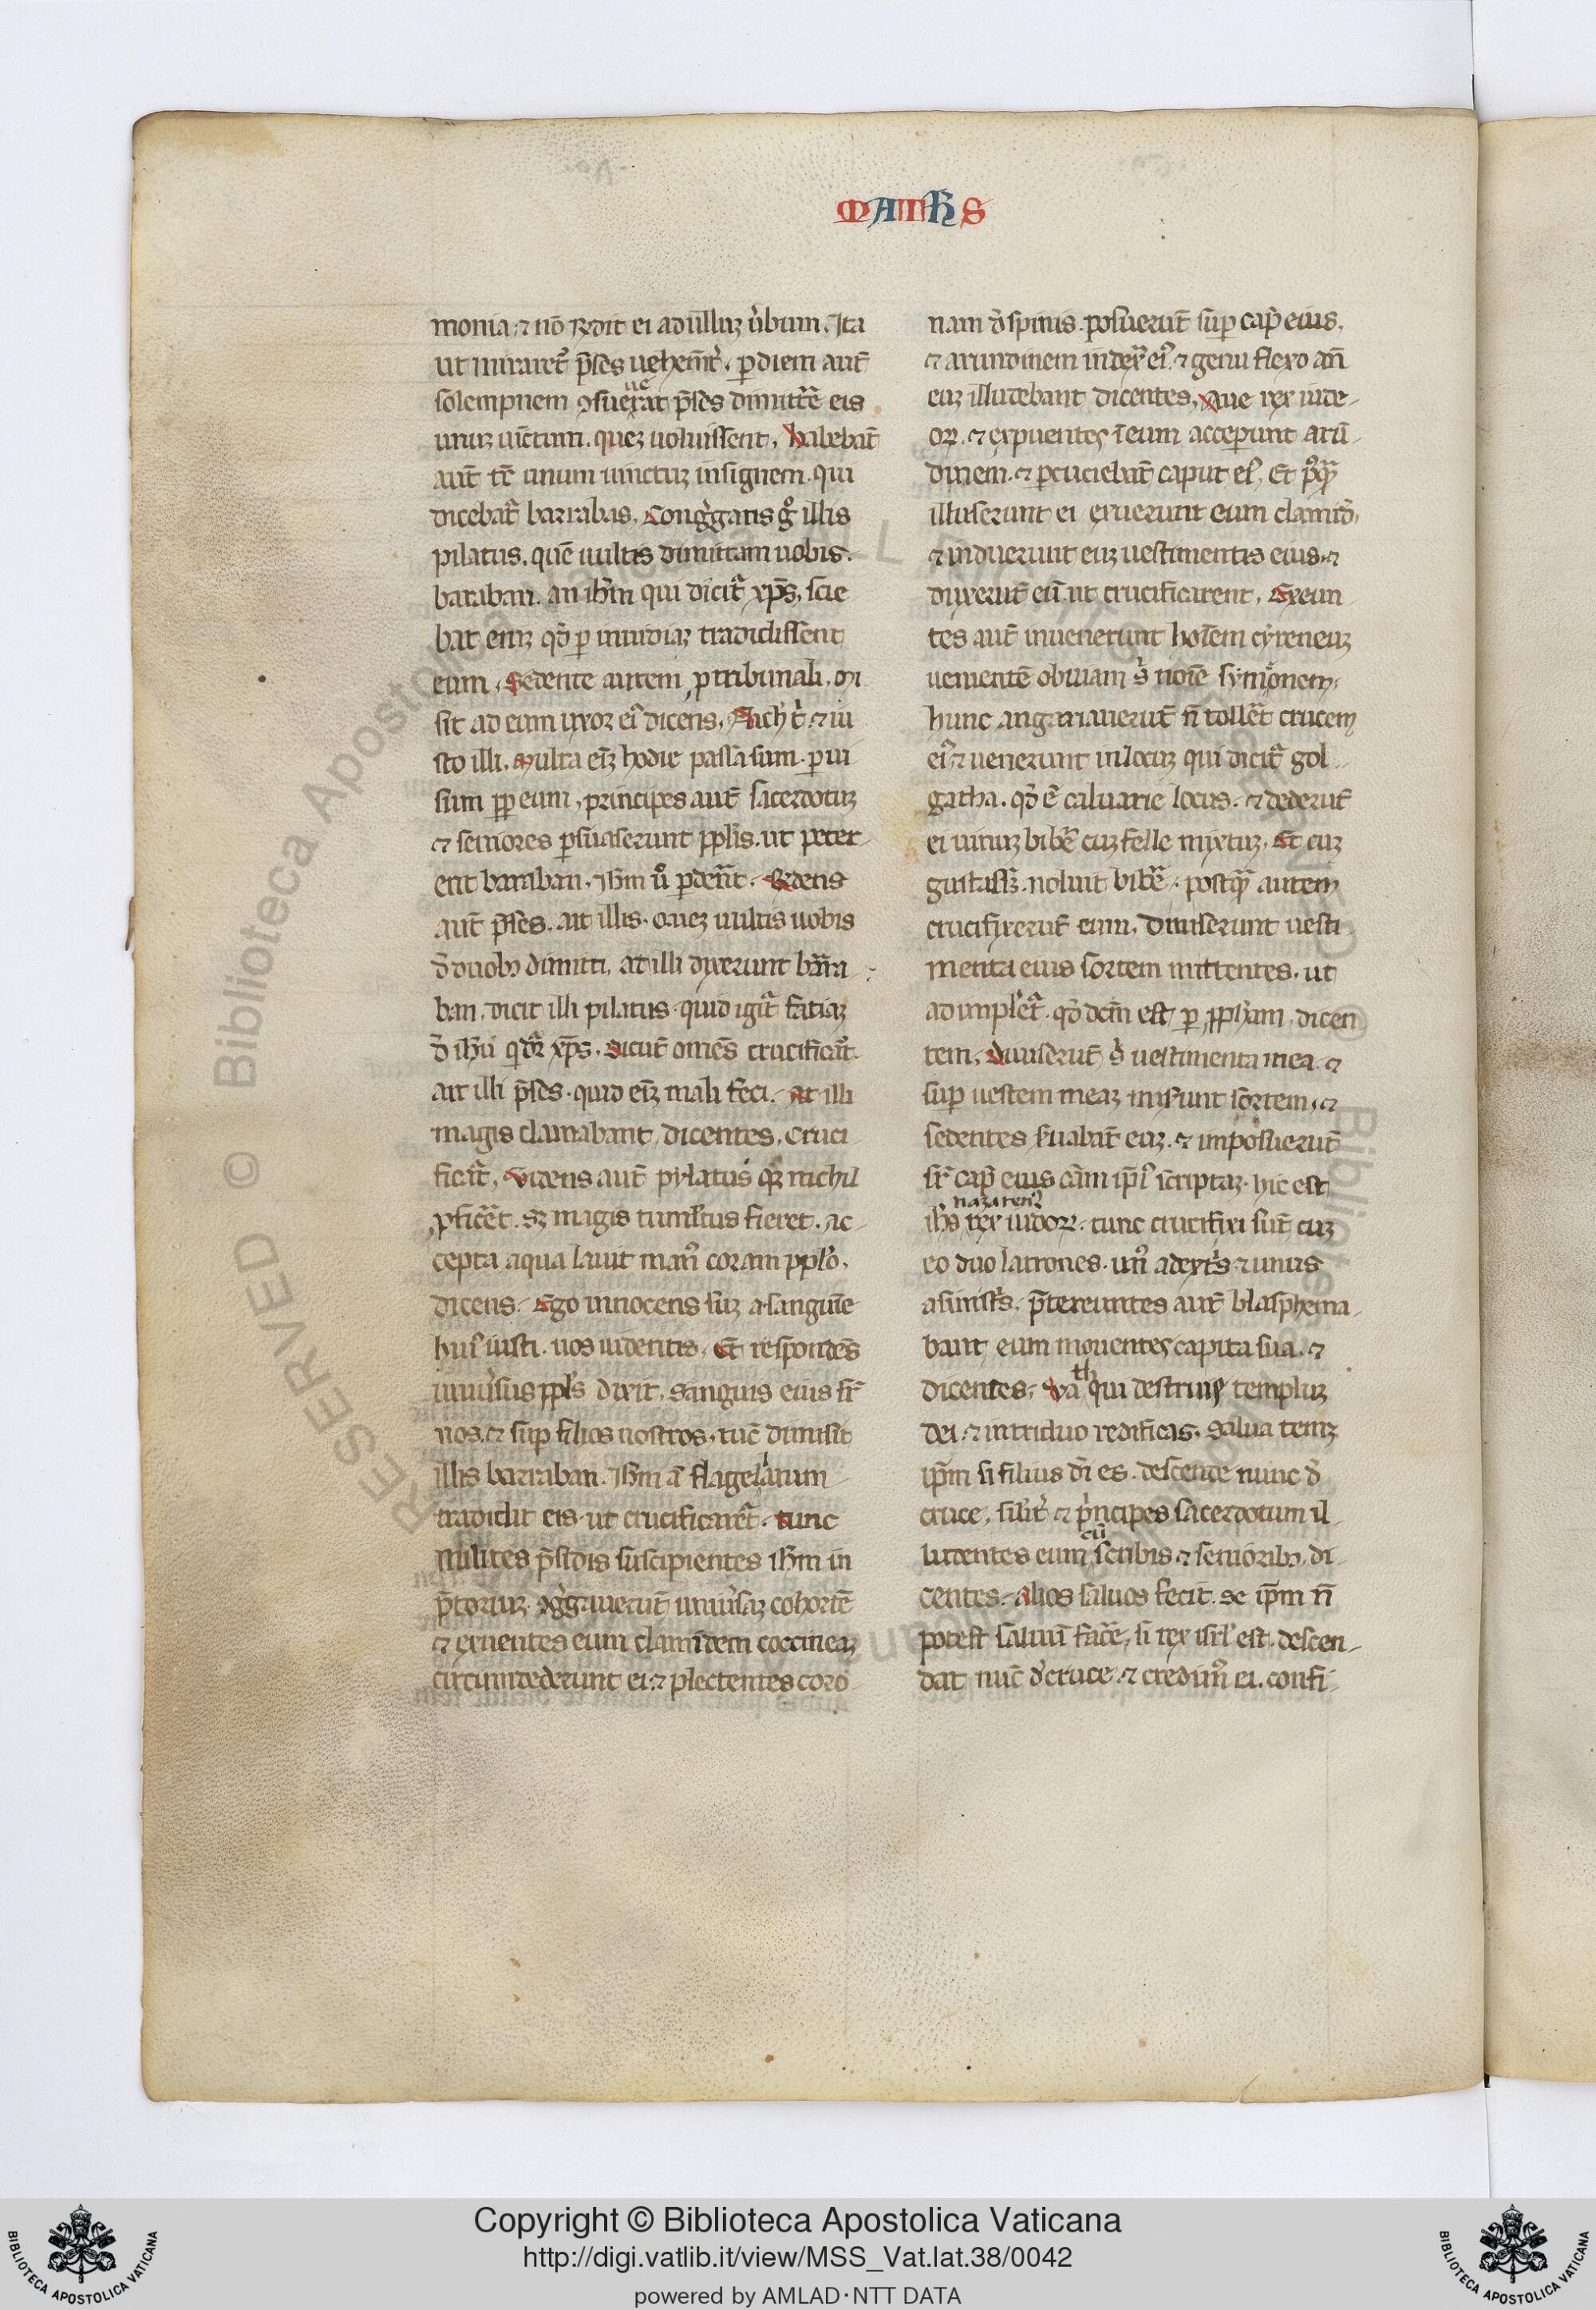 MATTħS
monia. ⁊ nō r̄dit ei ad ullū ꝟbum. Ita
ut miraret᷑ p̄ses uehem̄t̾. ꝑ diem aut̄
solempnem ꝯsuerat p̄ses dimitt̄e eis
ue
unuꝫ uictum. queꝫ uoluissent, habebat̄
aut̄ tc̄ unum uinctuꝫ insignem. qui
dicebat᷑ barrabas, Congͥgatis gͦ illis
pilatus. quē uultis dimittam uobis.
baraban. an ihm̄ qui dicit᷑ xp̄s, scie
bat eniꝫ qđ ꝑ inuidiaꝫ tradidissent
eum, Sedente autem ꝓ tribunali, mi
sit ad eum uxor eiꝰ dicens, Nichͥ t̾ ⁊ iu
sto illi, Multa eīꝫ hodie passa sum. ꝑ ui
sum ꝓꝑ eum, principes aut̄ sacerdotuꝫ
⁊ seniores ꝑsuaserunt ppl̄is. ut peter
ent baraban, ihm̄ uͦ ꝑdēnt. R̄dens
aut̄ p̄ses. ait illis. Queꝫ uultis uobis
đ duobꝫ dimitti, at illi dixerunt bar̄a
ban, dicit illi pilatus. quid igit᷑ fatiaꝫ
đ ihū q̇ dr̄ xp̄s, Dicūt om̄es crucificat᷑.
ait illi p̄ses. quid eīꝫ mali feci. At illi
magis clamabant, dicentes, cruci
ficat᷑, Videns aut̄ pylatus qꝫ nichil
ꝓficēt. sꝫ magis tumltus fieret. ac
cepta aqua lauit manꝰ coram ppl̄o,
dicens. Ego innocens suꝫ a sanguīe
huiꝰ iusti. uos uideritis. Et respondēs
uniꝟsus ppl̄s dixit, sanguis eius sr̄
nos, ⁊ suꝑ filios nostros, tūc dimisit
illis barraban. ihm̄ aͭ flagellatum
tradidit eis ut crucificaret᷑. Tunc
milites p̄sidis suscipientes ihm̄ in
p̄toriuꝫ. ꝯgͥgauerūt uniꝟsaꝫ cohortē
⁊ exuentes eum clamidem coccineaꝫ
circumdederunt ei. ⁊ plectentes coro
nam đ spinis. posuerūt suꝑ cap̄ eius,
⁊ arundinem in dext̾ eiꝰ. ⁊ genu flexo an̄
euꝫ illudebant dicentes, Aue rex iude
oꝝ. ⁊ expuentes ī eum acceperunt arū
dinem. ⁊ ꝑcuciebāt caput eiꝰ, Et pꝰqꝫ
illuserunt ei exuerunt eum clamid̾,
⁊ induerunt euꝫ uestimentis eius. ⁊
duxerūt eū ut crucificarent, Exeun
tes aut̄ inuenerunt hoīem cyreneuꝫ
uenientē obuiam s̾ noīe symonem,
hunc angariauerūt ū tollēt crucem
eiꝰ. ⁊ uenerunt in locuꝫ qui dicit᷑ gol
gatha. qđ ē caluarie locus. ⁊ dederūt
ei uinuꝫ bibē cuꝫ felle mixtuꝫ, Et cuꝫ
gustassꝫ. noluit bibē. postqꝫ autem
crucifixerūt eum, Diuiserunt uesti
menta eius sortem mittentes. ut
adimplet᷑. qđ dc̄m est ꝑ ꝓphām, dicen
tem, Diuiserūt s̾ uestimenta mea. ⁊
suꝑ uestem meaꝫ misunt sortem, ⁊
sedentes ẜuabāt euꝫ. ⁊ imposuerūt
sr̄ cap̄ eius cām ip̄iꝰ scriptaꝫ. hic est
nazarenꝰ
ihs rex iudoꝝ. tunc crucifixi sūt cuꝫ
eo duo latrones. unꝰ a dextͥs ⁊ unus
a sinistͥs, p̄tereuntes aut̄ blasphema
bant eum mouentes capita sua. ⁊
dicentes, Va qui destruis templuꝫ
th
dei. ⁊ in triduo redificas, salua temꝫ
ip̄m si filius dī es. descende nunc đ
cruce, silit̾ ⁊ pͥncipes sacerdotum il
ludentes eum scribis ⁊ senioribꝫ, di
cū
centes. Alios saluos fecit. se ip̄m n̄
potest saluū facē, si rex isrl̄ est. descen
dat nūc đ cruce. ⁊ credimꝰ ei. confi
Copyright © Biblioteca Apostolica Vaticana
http://digi.vatlib.it/view/MSS_Vat.lat.38/0042
powered by AMLAD·NTT DATA
BIBLIOTECA APOSTOLICA VATICANA
BIBLIOTECA APOSTOLICA VATICANA